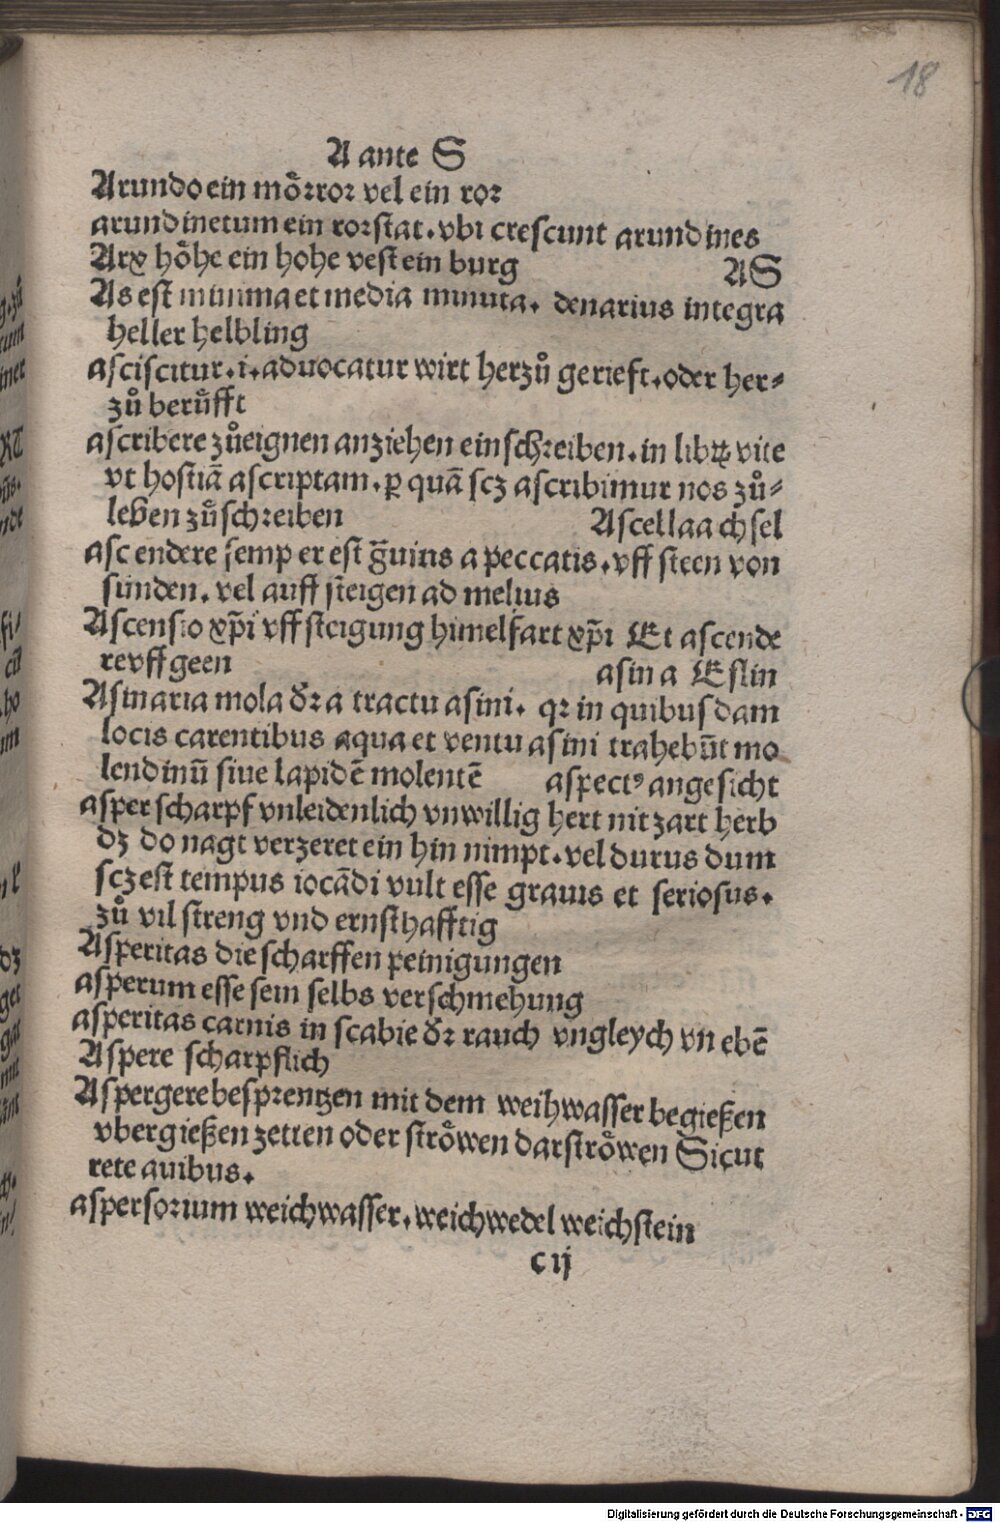 18
A ante S
Arundo ein mo̊rror vel ein ror
arundinetum ein rorstat. vbi crescunt arundines
Arx ho̊he ein hohe vest ein burg AS
As est minima et media minuta. denarius integra
heller helbling
asciscitur. i. aduocatur wirt herzů gerieft. oder her⸗
zů berůfft
ascribere zůeignen anziehen einschreiben. in libꝝ vite
vt hostiā ascriptam. ꝑ quā scꝫ ascribimur nos zů⸗
leben zůschreiben Ascella achsel
ascendere semper est g̅uius a peccatis. vff steen von
sunden. vel auff steigen ad melius
Ascensio xp̄i vffsteigung himelfart xp̄i Et ascende
re vff geen asina Eslin
Asinaria mola dꝛ̄ a tractu asini. qꝛ in quibusdam
locis carentibus aqua et ventu asini trahebūt mo
lendinū siue lapidē molentē aspectꝰ angesicht
asper scharpf vnleidenlich vnwillig hert nit zart herb
dꝫ do nagt verzeret ein hin nimpt. vel durus dum
scꝫ est tempus iocādi vult esse grauis et seriosus.
zů vil streng vnd ernsthafftig
Asperitas die scharffen peinigungen
asperum esse sein selbs verschmehung
asperitas carnis in scabie dꝛ̄ rauch vngleych vn ebē
Aspere scharpflich
Aspergere besprentzen mit dem weihwasser begießen
vbergießen zetten oder strőwen darstrőwen Sicut
rete auibus.
aspersorium weichwasser. weichwedel weichstein
c ij
Digitalisierung gefördert durch die Deutsche Forschungsgemeinschaft - DFG